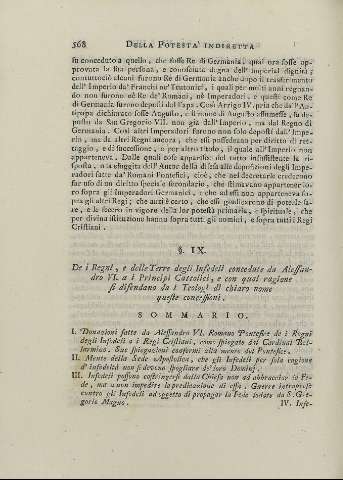 568 DELLA POTESTA' INDIRETTA
fu conceduto a quello, che fosse Re di Germania, qual ora fosse approvata
la sua persona, e conosciuta degna dell' imperial dignità;
contuttociò alcuni furono Re di Germania anche dopo il trasferimento
dell' Imperio da' Franchi ne' Teutonici, i quali per molti anni regnando
non furono nè Re de' Romani, nè Imperadori: e questi come Re
di Germania furono deposti dal Papa. Così Arrigo IV. pria che da l'Antipapa
dichiarato fosse Augusto, e il nome di Augusto assumesse, fu deposto
da San Gregorio VII. non già dall' Imperio, ma dal Regno di
Germania. Così altri Imperadori furono non solo deposti dall' Imperio,
ma da altri Regni ancora, che essi possedevan per diritto di retaggio,
e di successione, o per altro titolo, il quale all' Imperio non
apparteneva. Dalle quali cose apparisce del tutto insussistente la risposta,
o sia sfuggita dell' Autor della difesa alle deposizioni degli Imperadori
fatte da' Romani Pontefici, cioè, che nel decretarle credevano
far uso di un diritto speciale secondario, che stimavano appartener loro
sopra gli Imperadori Germanici, e che ad essi non apparteneva sopra
gli altri Regi; che anzi è certo, che essi giudicarono di poterle fare,
e le fecero in vigore della lor potestà primaria, e spirituale, che
per divina istituzione hanno sopra tutti gli uomini, e sopra tutti i Regi
Cristiani.
§. IX.
De i Regni, e delle Terre degli Infedeli concedute da Alessandro
VI. a i Principi Cattolici, e con qual ragione
si difendano da i Teologi di chiaro nome
queste concessioni.
SOMMARIO.
I. Donazioni fatte da Alessandro VI. Romano Pontefice de i Regni
degli Infedeli a i Regi Cristiani, come spiegate dal Cardinal Bellarmino.
Sue spiegazioni conformi alla mente del Pontefice.
II. Mente della Sede Apostolica, che gli Infedeli per sola cagione
d'infedeltà non si devono spogliare de' loro Dominj.
III. Infedeli possono costringersi dalla Chiesa non ad abbracciar la Fede,
ma a non impedire la predicazione di essa. Guerre intraprese
contro gli Infedeli ad oggetto di propagar la Fede lodate da S. Gregorio
Magno.
IV. Infe-